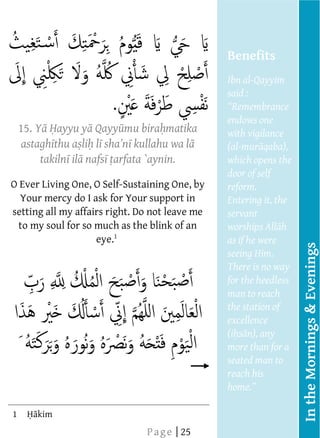 يَا حَيُّ يَا قَيُّومُ بِرَحْمَتِكَ أَسْتَغِيثُ
أَصْلِحْ لِي شَأْنِي كُلَّهُ وَلَا تَكِلْنِي إِلَى
نَفْسِي طَرْفَةَ عَيْنٍ.
15. Yā Ḥayyu yā Qayyūmu biraḥmatika
astaghīthu aṣliḥ lī sha’nī kullahu wa lā
takilnī ilā nafsī ṭarfata `aynin.
O Ever Living One, O Self-Sustaining One, by
Your mercy do I ask for Your support in
setting all my affairs right. Do not leave me
to my soul for so much as the blink of an
eye.1
أَصْبَحْنَا وَأَصْبَحَ الْمُلْكُ لِلَّهِ رَبِّ
الْعَالَمِينَ اللَّهُمَّ إِنِّي أَسْأَلُكَ خَيْرَ هَذَا
الْيَوْمِ فَتْحَهُ وَنَصْرَهُ وَنُورَهُ وَبَرَكَتَهُ
1 Ḥākim
Page | 25
Benefits
Ibn al-Qayyim
said :
“Remembrance
endows one
with vigilance
(al-murāqaba),
which opens the
door of self
reform.
Entering it, the
servant
worships Allāh
as if he were
seeing Him.
There is no way
for the heedless
man to reach
the station of
excellence
(iḥsān), any
more than for a
seated man to
reach his
home.”
In the Mornings & Evenings